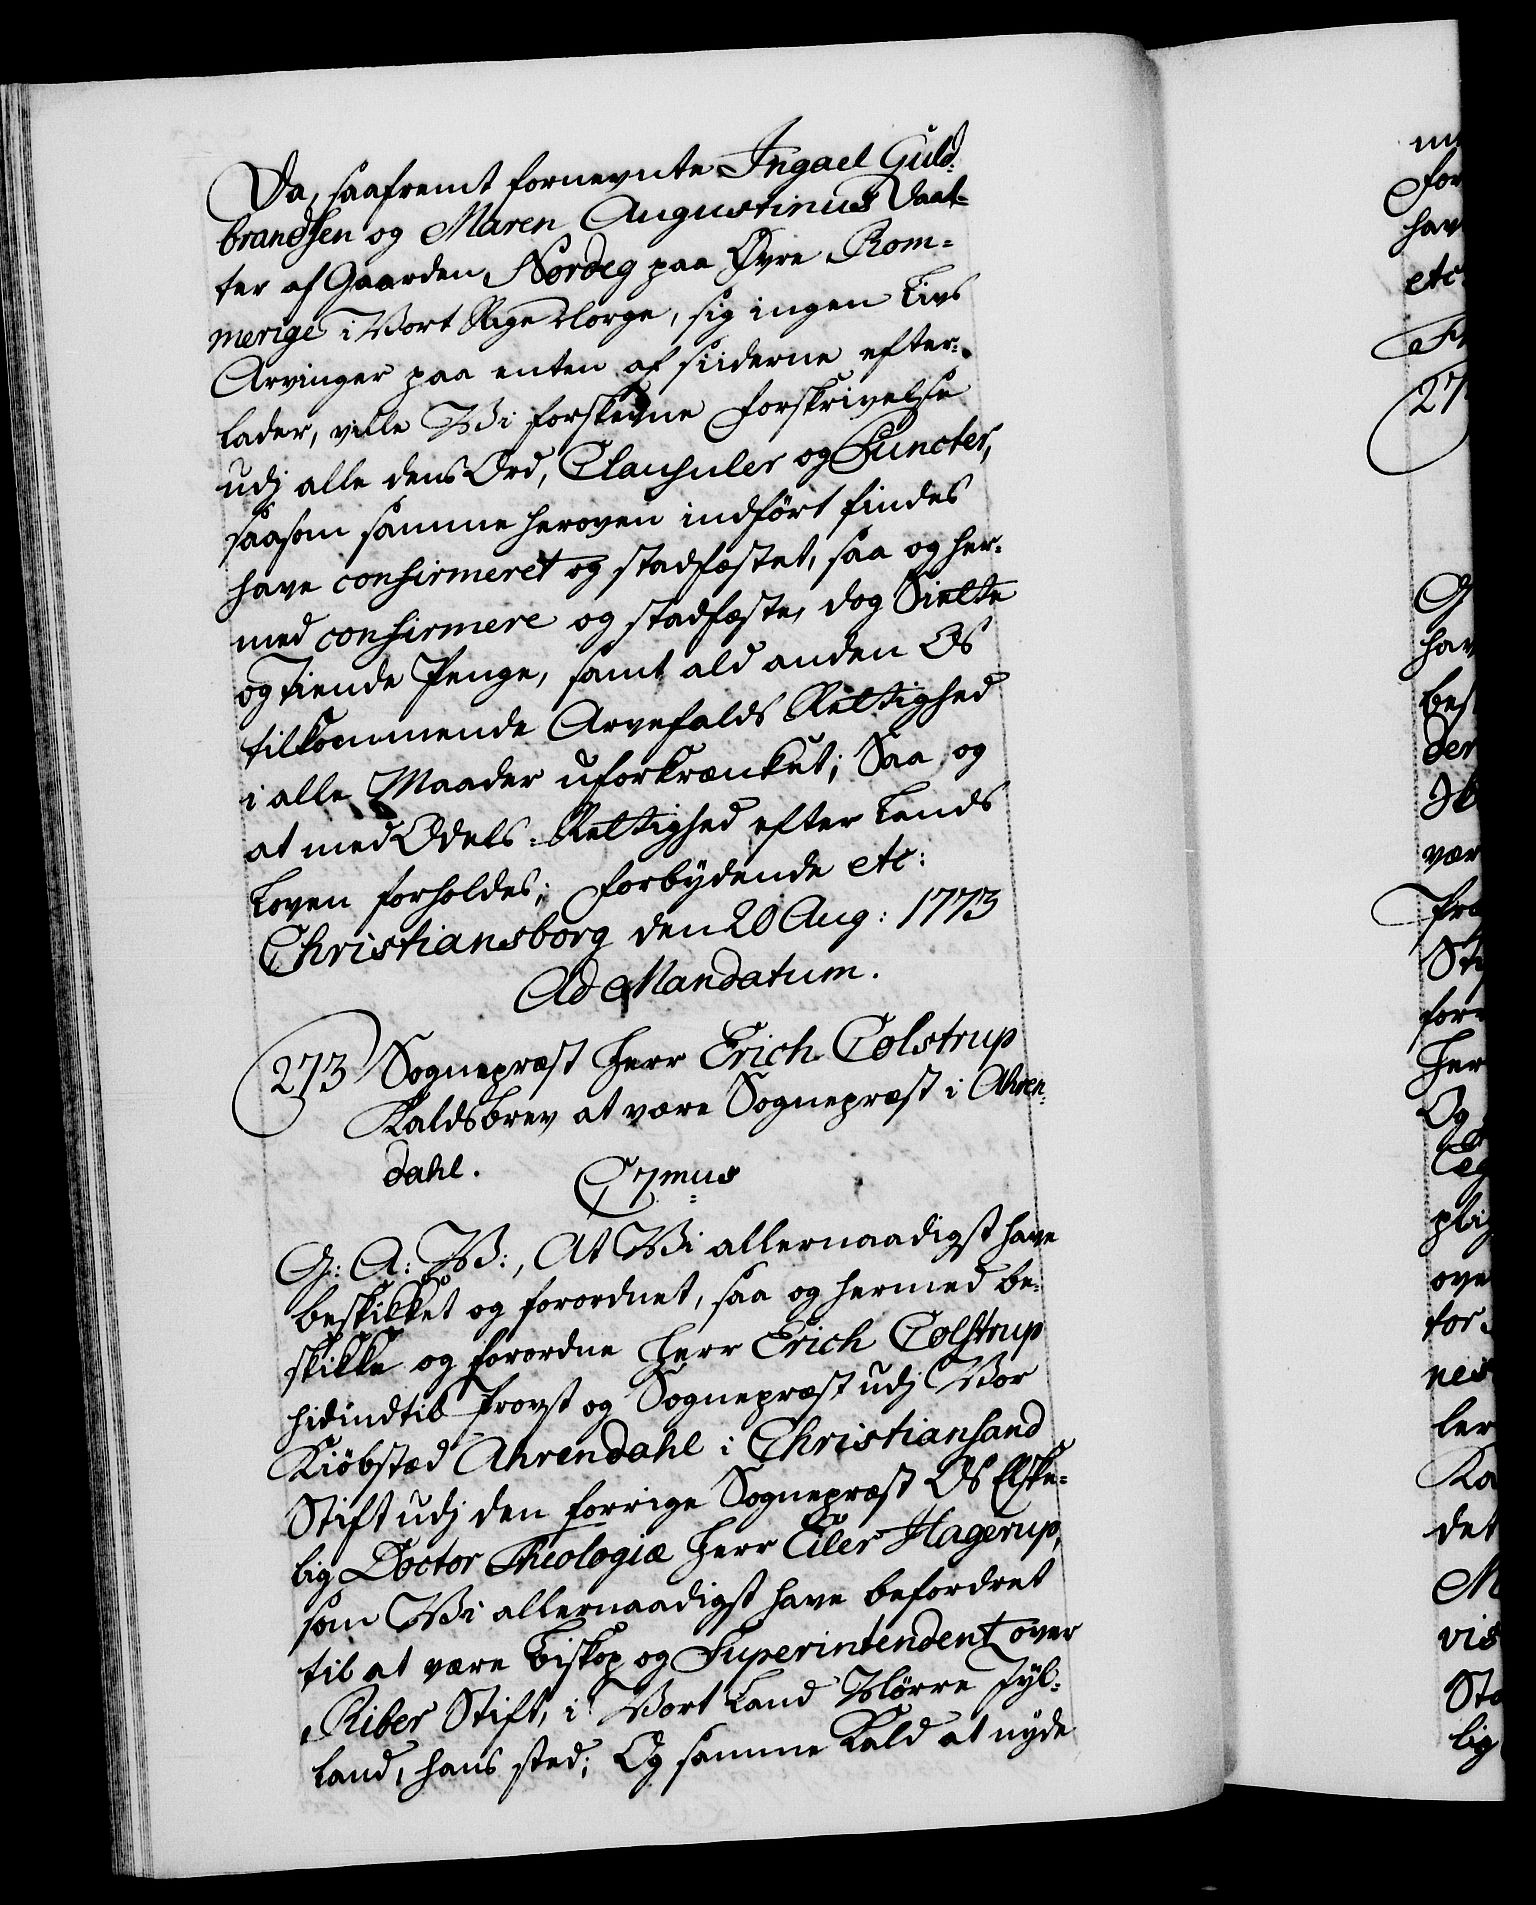 Da, saafremt fornevnte Ingael Guld-
brandsen og Maren Augustinus Daat-
ter af Gaarden Nordeg paa Øvre Rom-
merige i Vort Rige Norge, sig ingen Livs
Arvinger paa enten af siiderne efter-
lader, ville Vi forskrevne Forskrivelse
udj alle dens Ord, Clausuler og Puncter,
saasom samme heroven indført findes
have confirmeret og stadfæstet, saa og her-
med confirmere og stadfæste, dog Siette
og Tiende Penge, samt ald anden Os
tilkommende Arvefalds Rettighed
i alle Maader uforkrænket; Saa og
at med Odels-Rettighed efter Lands
Loven forholdes; Forbydende etc:
Christiansborg den 20 Aug: 1773
Ad Mandatum.
273 Sognepræst Herr Erich Colstrup
Kaldsbrev at være Sognepræst i Ahren-
dahl. C 7mus
G: A: V:, At Vi allernaadigst have
beskikket og forordnet, saa og hermed be-
skikke og forordne Herr Erich Colstrup
hidindtil Provst og Sognepræst udj Vor
Kiøbstæd Ahrendahl i Christiansand
Stift udj den forrige Sognepræst Os Elske-
lig Doctor Theologiæ Herr Eiler Hagerup,
som Vi allernaadigst have befordret
til at være Biskop og Superintendent over
Riber Stift, i Vort Land Nørre Jyl-
land, hans sted; Og samme Kald at nyde